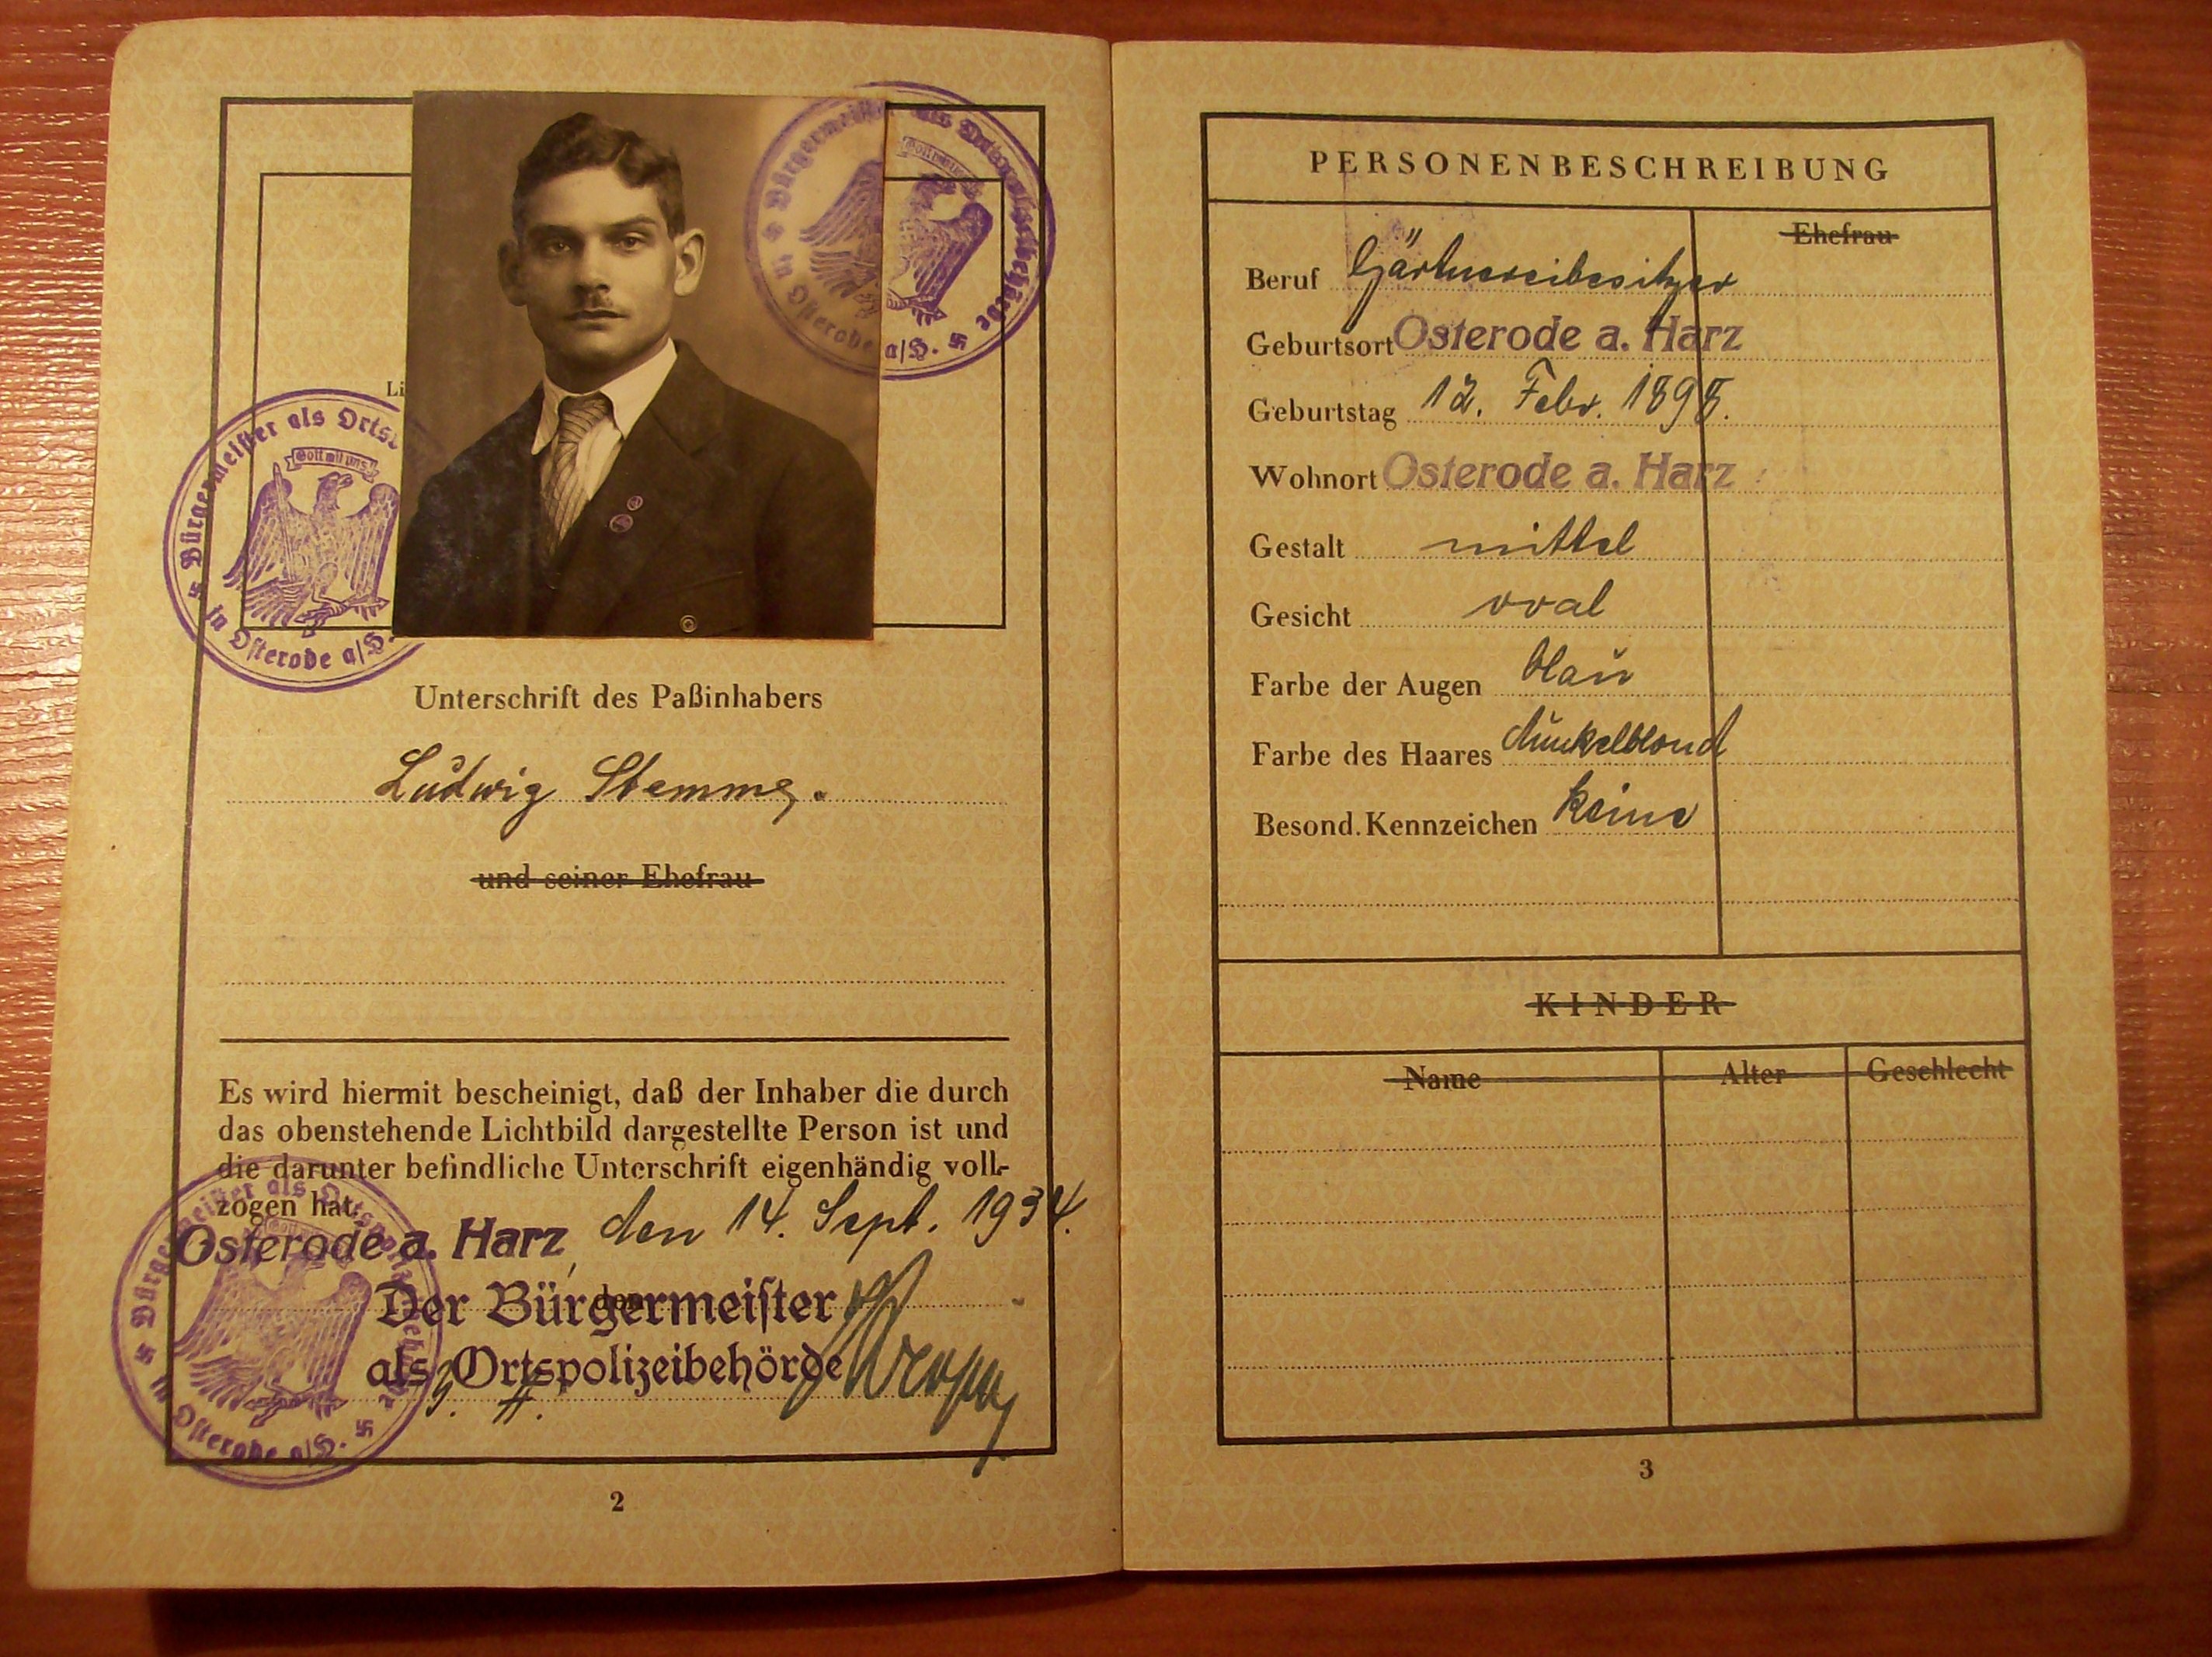 Bürgermeister als Ortspolizeibehörde
Gott mit uns
in Osterode a/H.
Li
Bürgermeister als Ortsp
Gott mit uns
in Osterode a/H.
Unterschrift des Paßinhabers
Ludwig Stemme.
und seiner Ehefrau
Es wird hiermit bescheinigt, daß der Inhaber die durch
das obenstehende Lichtbild dargestellte Person ist und
die darunter befindliche Unterschrift eigenhändig voll-
zogen hat.
Osterode a. Harz, den 14. Sept. 1934.
den
Der Bürgermeister
als Ortspolizeibehörde
Bürgermeister als Ortspolizeibehörde
in Osterode a/H.
2
PERSONENBESCHREIBUNG
Ehefrau
Beruf Gärtnereibesitzer
Geburtsort Osterode a. Harz
Geburtstag 12. Febr. 1898.
Wohnort Osterode a. Harz
Gestalt mittel
Gesicht oval
Farbe der Augen blau
Farbe des Haares dunkelblond
Besond. Kennzeichen keine
KINDER
Name Alter Geschlecht
3